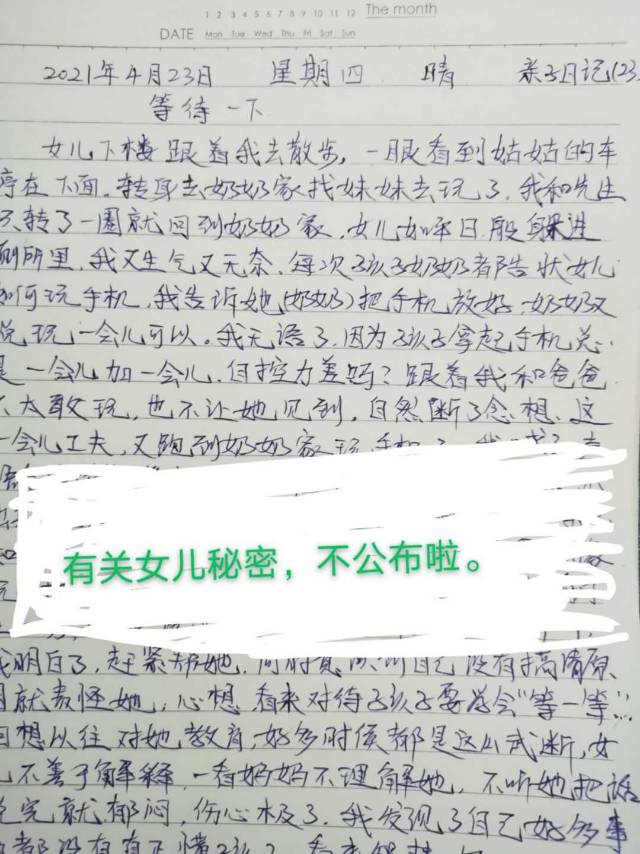 1 2 3 4 5 6 7 8 9 10 11 12 The month
DATE Mon Tue Wed Thu Fri Sat Sun
2021年4月23日 星期四 晴 亲子日记(23
等待一下
女儿下楼跟着我去散步,一眼看到姑姑的车
停在下面.转身去奶奶家找妹妹去玩了.我和先生
只转了一圈就回到奶奶家.女儿如平日般躲进
厕所里.我又生气又无奈.每次孩子奶奶都告状女儿
如何玩手机.我告诉她(奶奶)把手机放好.奶奶又
说玩一会儿可以。我无语了.因为孩子拿起手机总
是一会儿加一会儿.自控力差吗?跟着我和爸爸
不太敢玩,也不让她见到,自然断了念想.这
一会儿工夫,又跑到奶奶家玩手机了.
有关女儿秘密,不公布啦。
我明白了,赶紧帮她.同时 自己没有搞清原
因就责怪她,心想.看来对待孩子要学会"等一等"...
回想以往对她教育,好多时候都是这么武断,女
儿不善于解释.一看妈妈不理解她,不听她把话
说完就郁闷,伤心极了.我发现了自己好多事